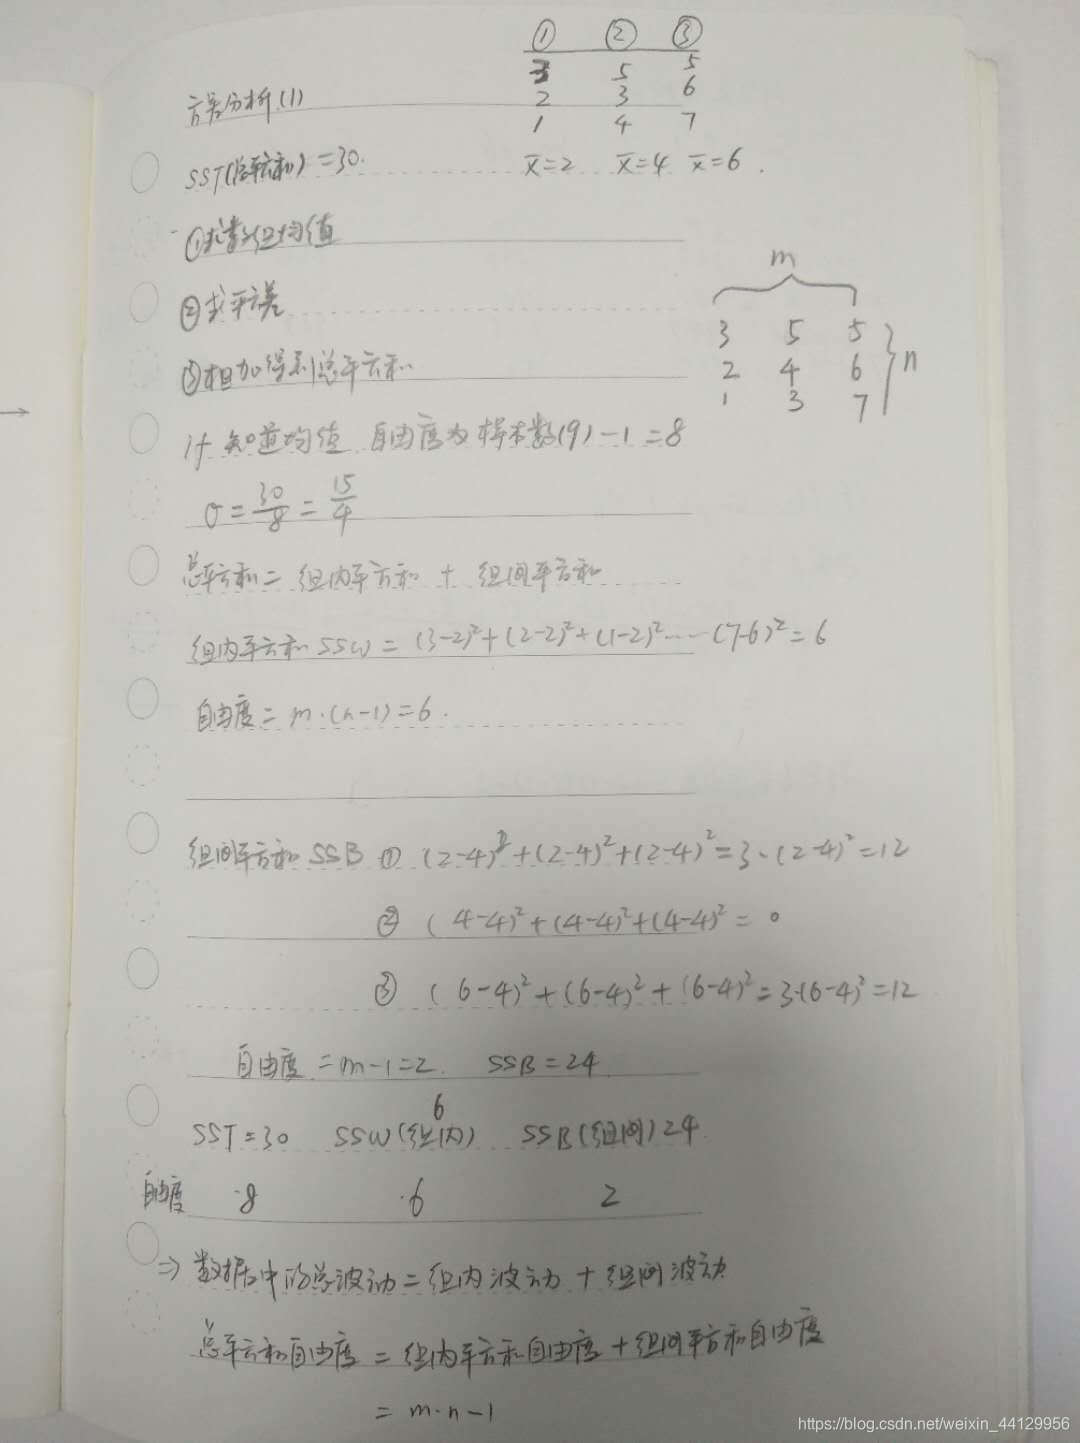 ① ② ③
3 5 5
2 3 6
方差分析(1)
1 4 7
SST(总平方和)=30.
x̄=2 x̄=4 x̄=6.
①求数组均值
②求平方差
③相加得到总平方和
m
3 5 5
2 4 6
1 3 7
n
if 知道均值 自由度为样本数(9)-1=8
σ=30/8=15/4
总平方和=组内平方和+组间平方和
组内平方和 SSW=(3-2)²+(2-2)²+(1-2)²……(7-6)²=6
自由度=m·(n-1)=6.
组间平方和 SSB ① (2-4)²+(2-4)²+(2-4)²=3·(2-4)²=12
② (4-4)²+(4-4)²+(4-4)²=0
③ (6-4)²+(6-4)²+(6-4)²=3·(6-4)²=12
自由度=m-1=2. SSB=24
SST=30 SSW(组内) 6 SSB(组间)24
自由度 8 6 2
⇒数据中的总波动=组内波动+组间波动
总平方和自由度=组内平方和自由度+组间平方和自由度
=m·n-1
https://blog.csdn.net/weixin_44129956